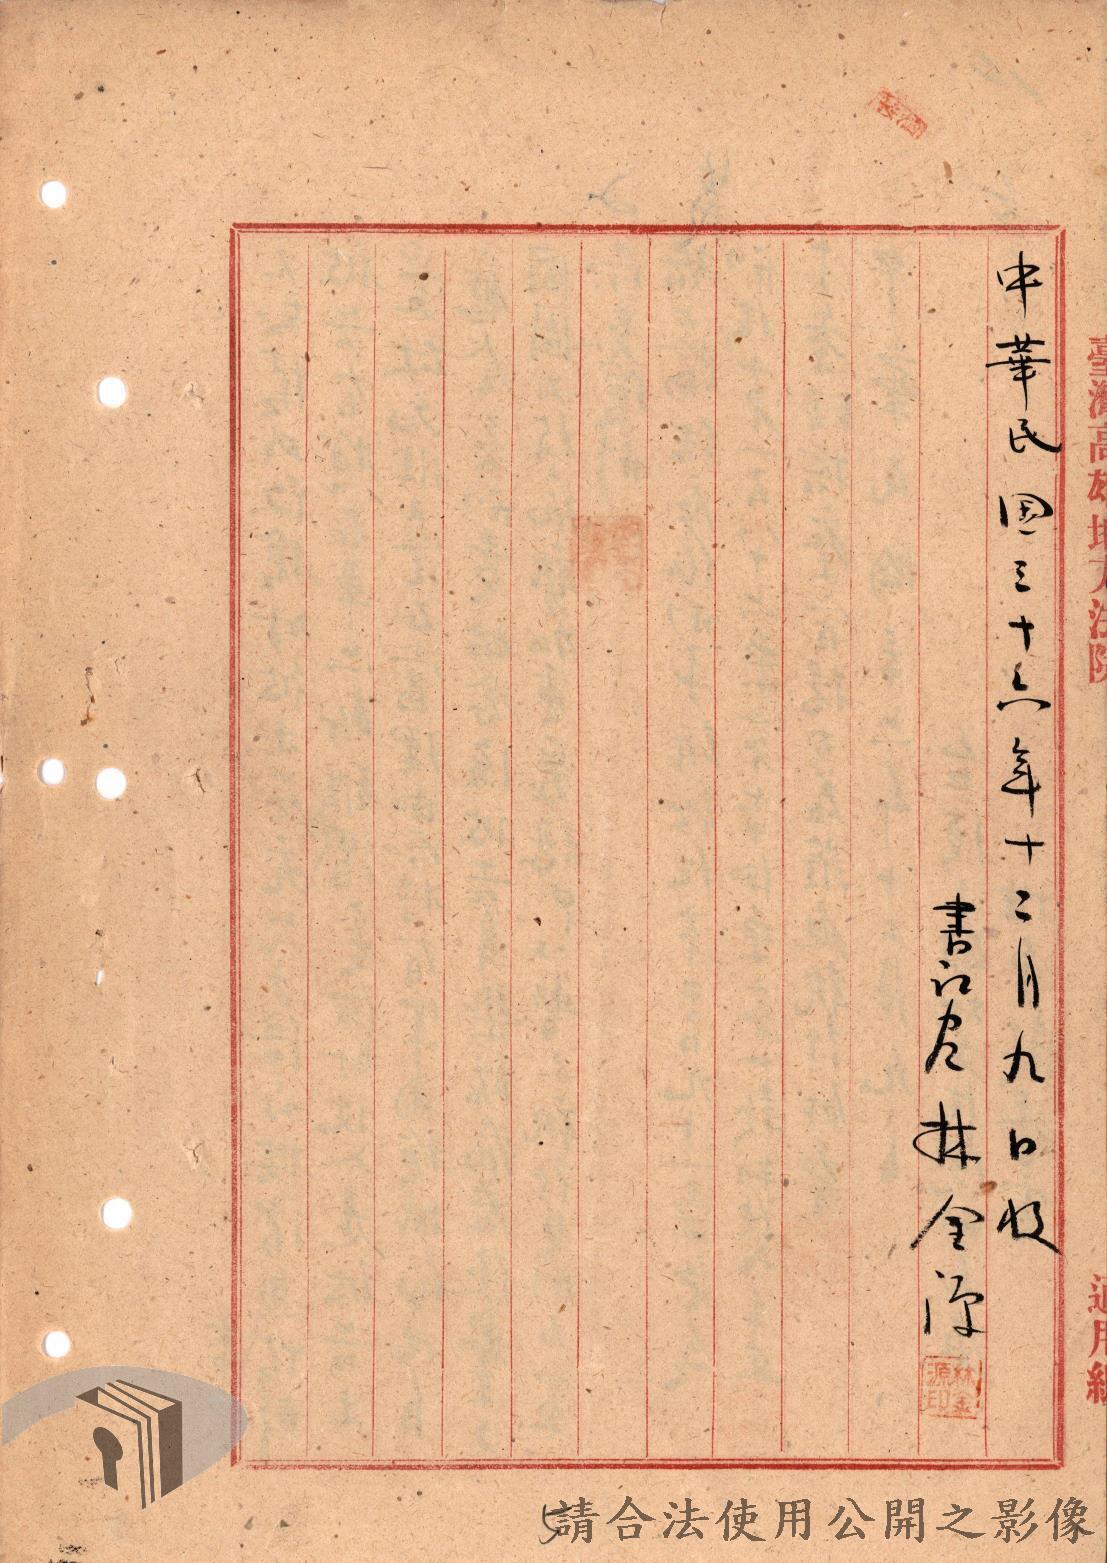 臺灣高雄地方法院
通用紙
中華民國三十六年十二月九日收
書記官 林金源
林金源印
5
請合法使用公開之影像